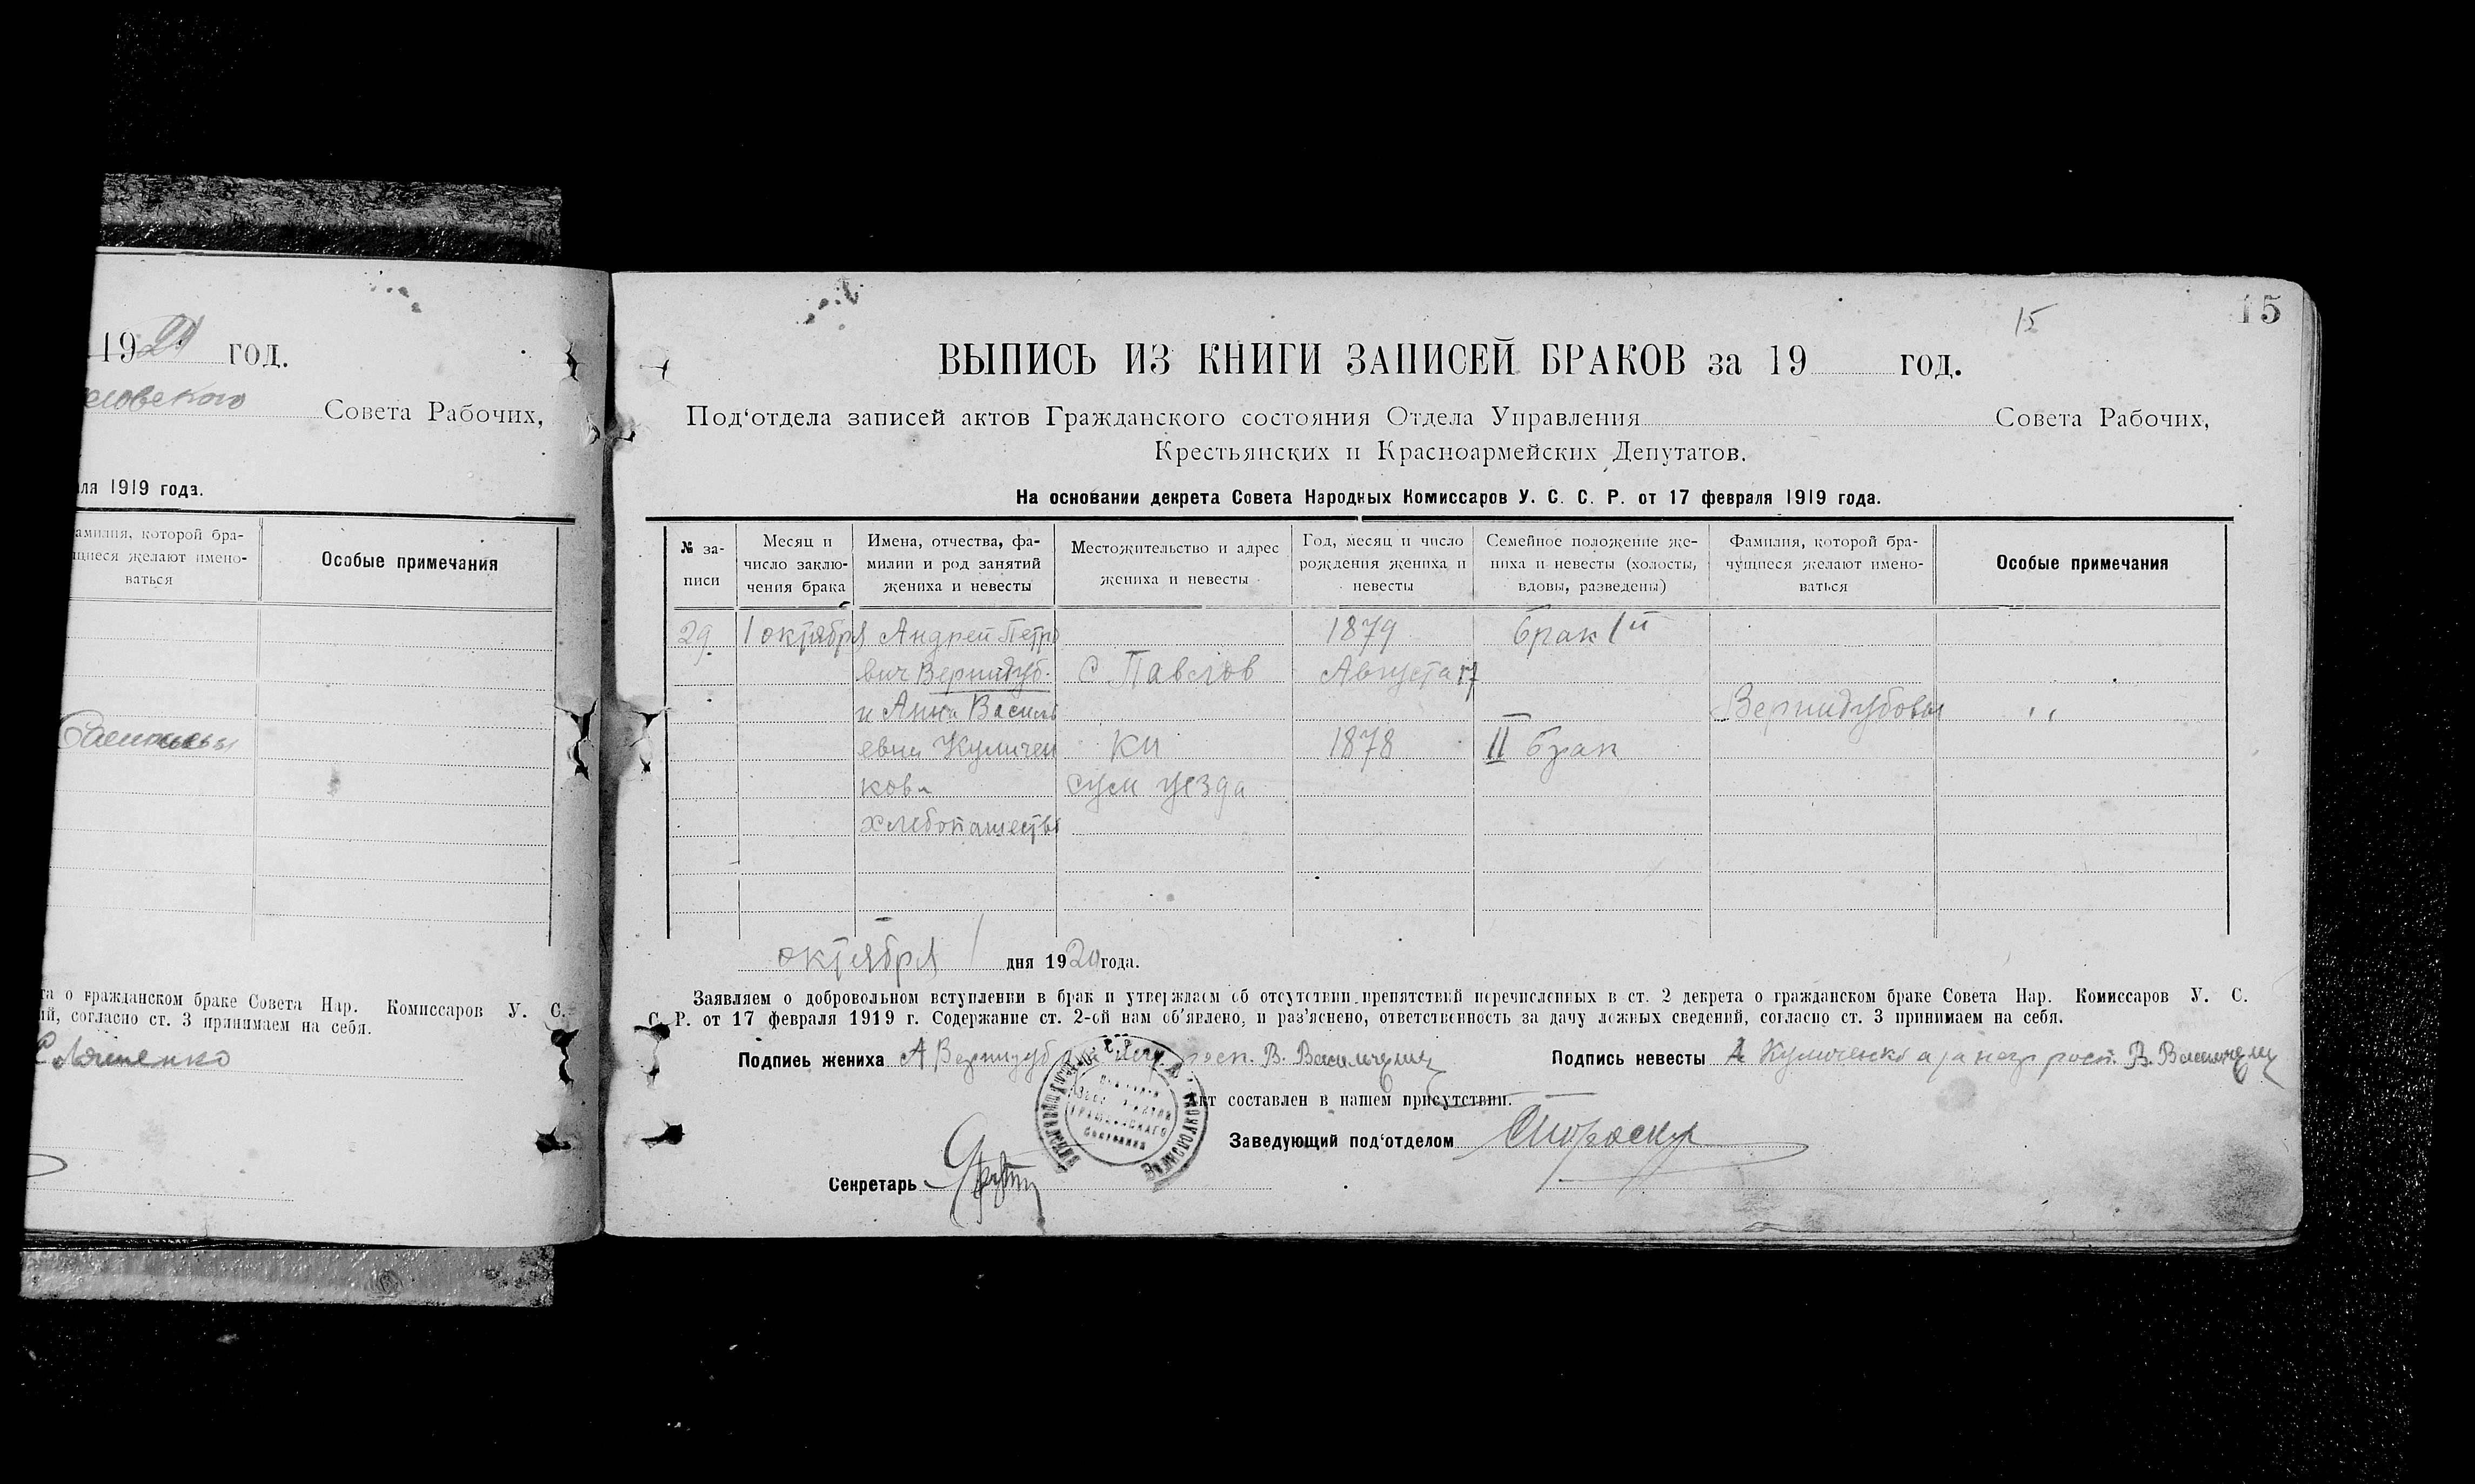 1920 год.
Совета Рабочих,
1919 года.
Особые примечания
ваться
С.
согласно ст. 3 принимаем на себя.
15
15
ВЫПИСЬ ИЗ КНИГИ ЗАПИСЕЙ БРАКОВ за 19 год.
Под‘отдела записей актов Гражданского состояния Отдела Управления Совета Рабочих,
Крестьянских и Красноармейских Депутатов.
На основании декрета Совета Народных Комиссаров У. С. С. Р. от 17 февраля 1919 года.
№ за-
писи
Месяц и
число заклю-
чения брака
Имена, отчества, фа-
милии и род занятий
жениха и невесты
Местожительство и адрес
жениха и невесты
Год, месяц и число
рождения жениха и
невесты
Семейное положение же-
ниха и невесты (холосты,
вдовы, разведены)
Фамилия, которой бра-
чущиеся желают имено-
ваться
Особые примечания
29 1 октября Андрей Петро 1879 брак Iй
вич Вернидуб с Павлов Августа 17
и Анна Василь Вернидубовы
евна Куличен ки 1878 II брак
кова сум уезда
хлебопашество
октября 1 дня 1920 года.
Заявляем о добровольном вступлении в брак и утверждаем об отсутствии препятствий перечисленных в ст. 2 декрета о гражданском браке Совета Нар. Комиссаров У. С.
С. Р. от 17 февраля 1919 г. Содержание ст. 2-ой нам об‘явлено, и раз‘яснено, ответственность за дачу ложных сведений, согласно ст. 3 принимаем на себя.
Подпись жениха А Вернидуб В.
Подпись невесты А Куличенко а за негр росп. В.
Акт составлен в нашем присутствии.
Заведующий под‘отделом
Секретарь